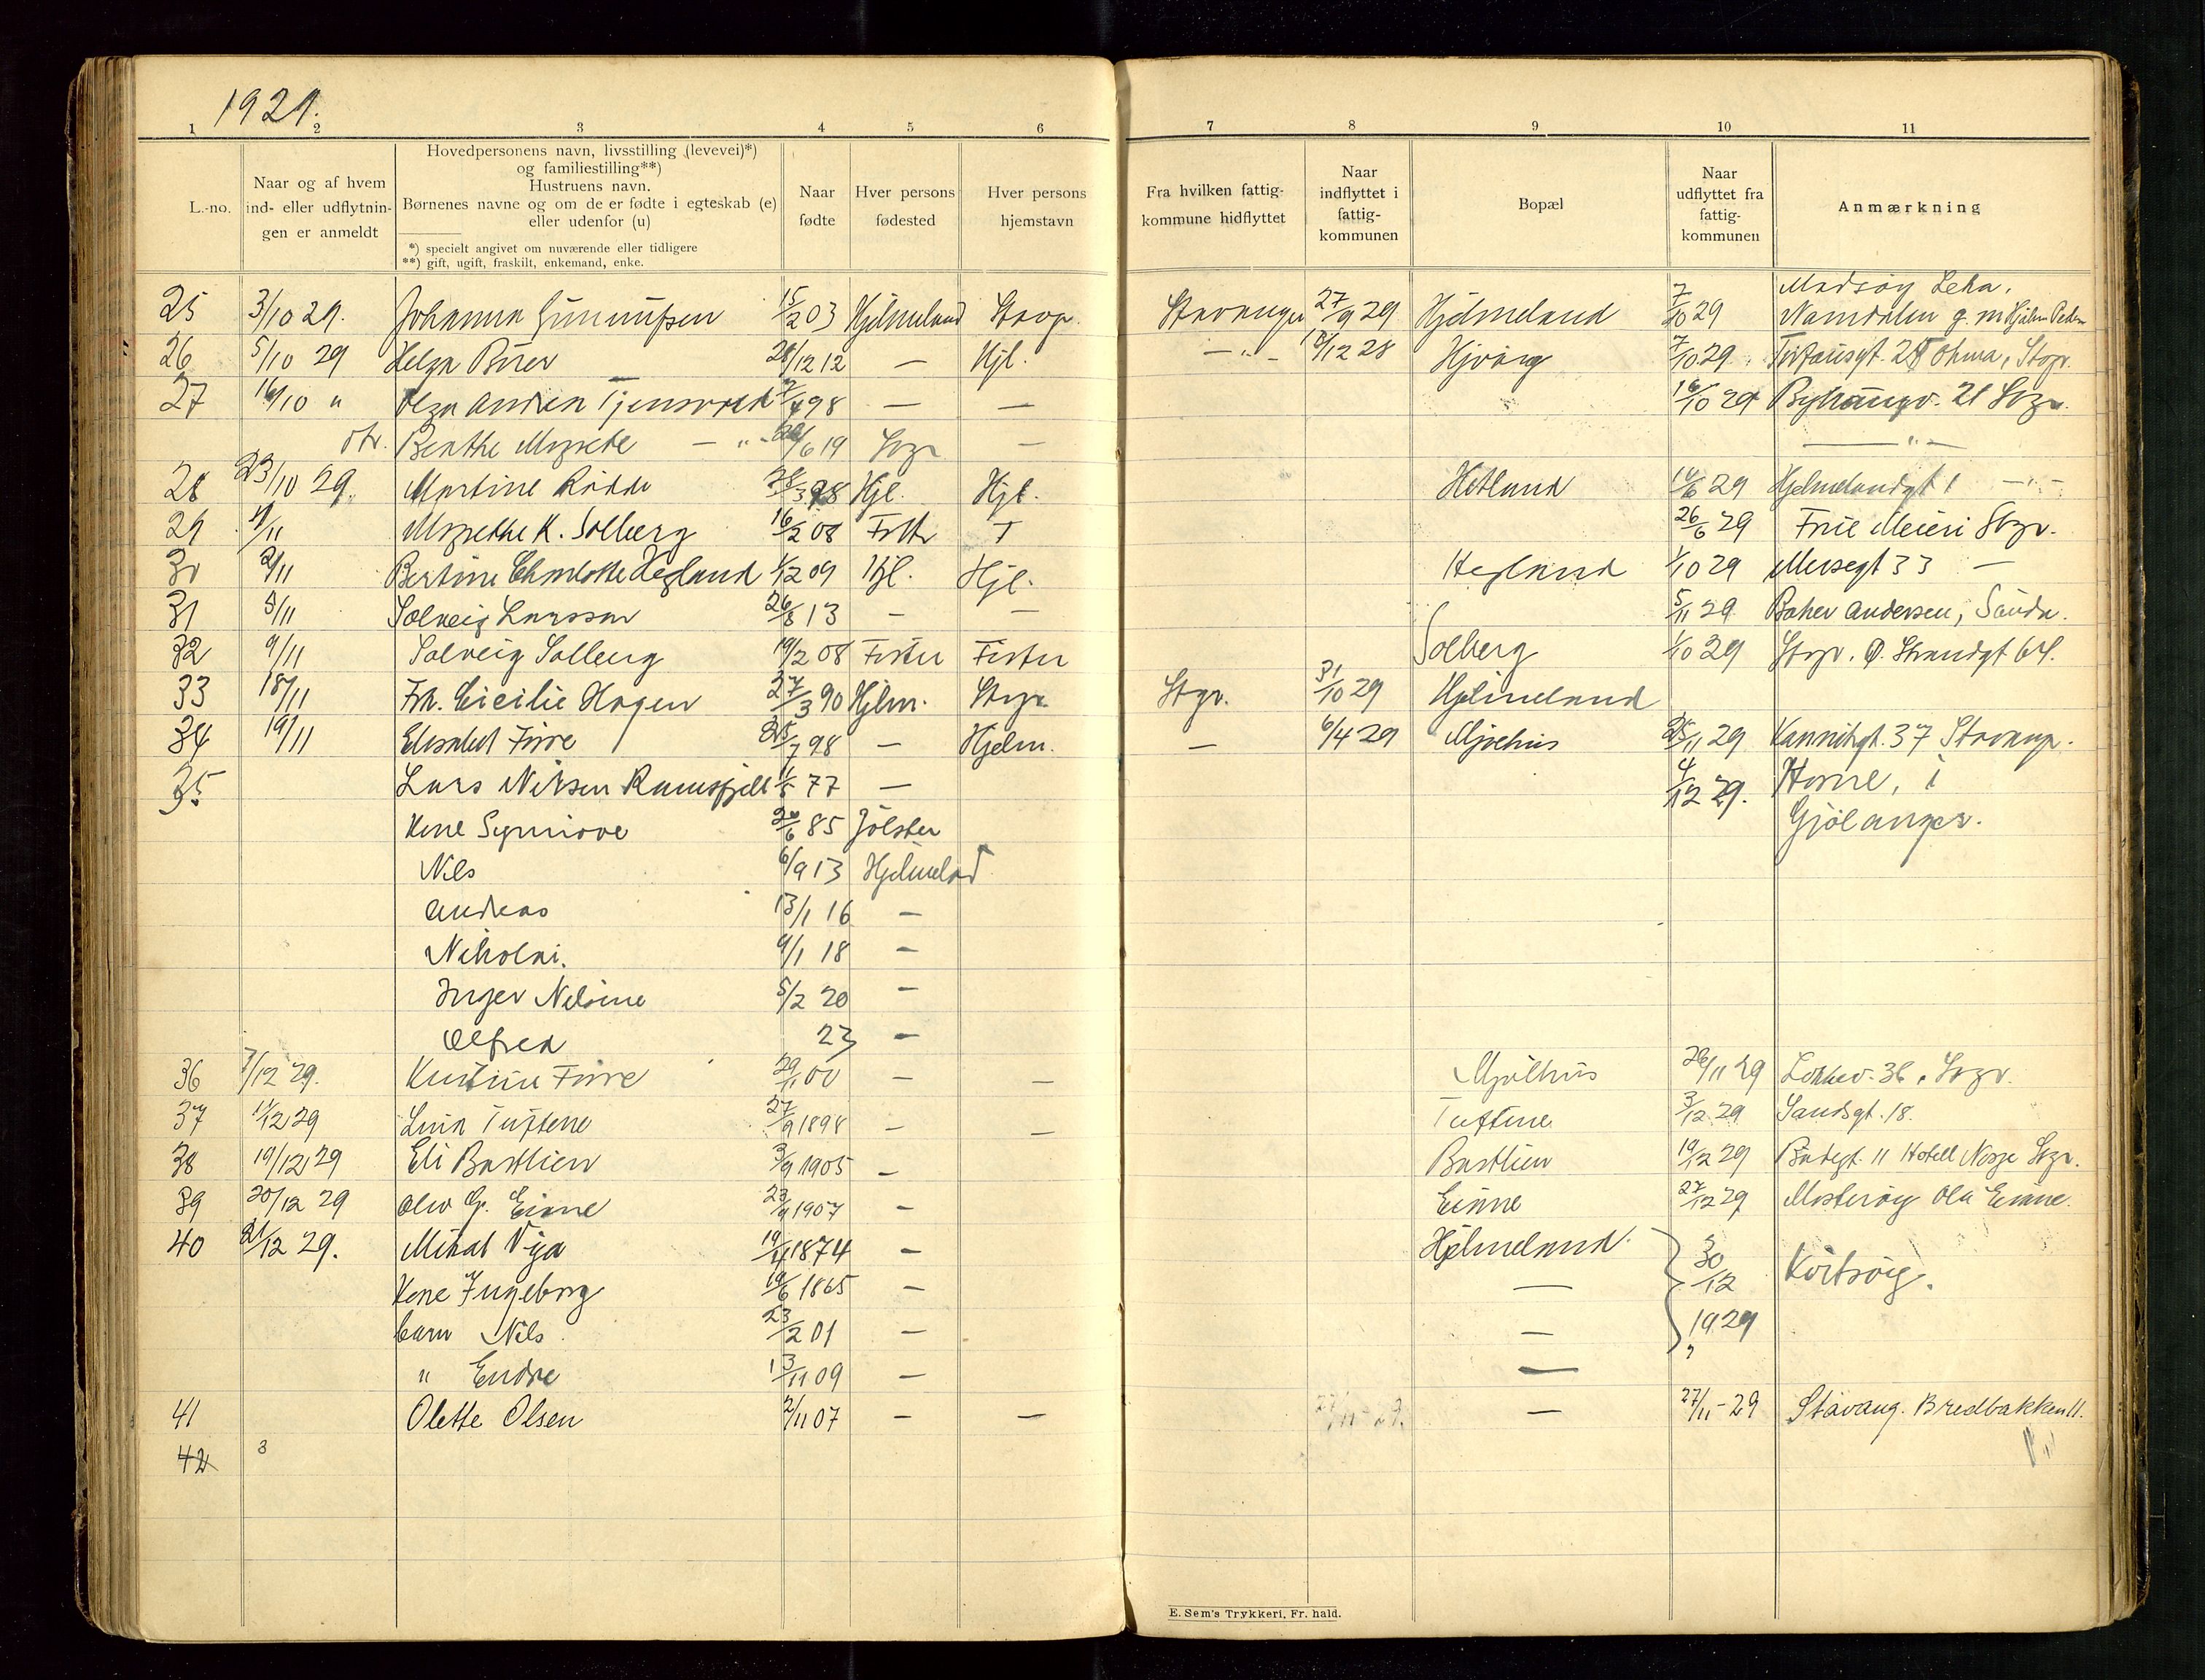 1929.
1 2 3 4 5 6 7 8 9 10 11
L.-no.
Naar og af hvem
ind- eller udflytnin-
gen er anmeldt
Hovedpersonens navn, livsstilling (levevei)*)
og familiestilling**)
Hustruens navn.
Børnenes navne og om de er fødte i egteskab (e)
eller udenfor (u)
*) specielt angivet om nuværende eller tidligere
**) gift, ugift, fraskilt, enkemand, enke.
Naar
fødte
Hver persons
fødested
Hver persons
hjemstavn
Fra hvilken fattig-
kommune hidflyttet
Naar
indflyttet i
fattig-
kommunen
Bopæl
Naar
udflyttet fra
fattig-
kommunen
Anmærkning
25 3/10 29. Johanna 15/2 03 Hjelmeland Stavgr. Stavanger 27/9 29 Hjelmeland 7/10 29 Leka, Namdalen g. m
26 5/10 29 Helga 28/12 12 — Hjl. —"— /12 28 7/10 29 Stvgr.
27 16/10 " Olga Andrea Tjensvold 2/4 98 — — 16/10 29 21 Svgr.
dtr. Berthe Margrete —"— /6 19 Svgr — —"—
28 23/10 29. Martine 28/3 98 Hjl. Hjl. Hetland 14/6 29 Hjelmelandgt 1 —"—
29 /11 Margrethe K. Solberg 16/2 08 Fister 26/6 29 Frue Meieri Svgr.
30 2/11 Bertine Charlotte Hegland 1/12 09 Hjl. Hjl. Hegland 1/10 29 Musegt 33 —
31 5/11 Solveig Larsson 26/8 13 — — 5/11 29 Baker Andersen, Sauda.
32 9/11 Solveig Solberg 19/2 08 Fister Fister Solberg 1/10 29 Stvgr. Ø. Strandgt 64.
33 18/11 Frk. Cicilie Hagen 27/3 90 Hjlm. Stvgr. Stvgr. 31/10 29 Hjelmeland
34 19/11 Elisabet Finne 25/7 98 — Hjelm. — 6/4 29 Mjølhus 25/11 29 Kannikgt. 37 Stavanger.
35 Lars Nilsen Ramsfjell 1/5 77 — 4/12 29. i
Kone Synnøve 20/6 85 Jølster
Nils 6/9 13 Hjelmeland
Andreas 13/1 16 —
Nikolai. 9/1 18 —
Inger Nilsine 5/2 20 —
Alfred 23 —
36 7/12 29. Kristine Finne 29/11 00 — — Mjølhus 26/11 29 36, Svgr.
37 17/12 29 Lina Tuftene 27/9 1898 — — Tuftene 3/12 29 Sandsgt. 18.
38 19/12 29 Eli Bastlien 3/9 1905 — Bastlien 19/12 29 11 Hotell Norge Svgr.
39 20/12 29 Olav G. Einne 23/9 1907 — Einne 27/12 29 Mosterøy Ola Einne.
40 21/12 29. Mikal Viga 19/11 1874 — Hjelmeland 30/12 1929 Kvitsøy.
Kone Ingeborg 19/6 1865 — —
barn Nils 23/2 01 — —
" Endre 13/11 09 — —
41 Olette Olsen 2/11 07 — — 27/11-29. — 27/11-29 Stavang. Bredbakken 11.
42 3
E. Sem's Trykkeri, Fr. hald.